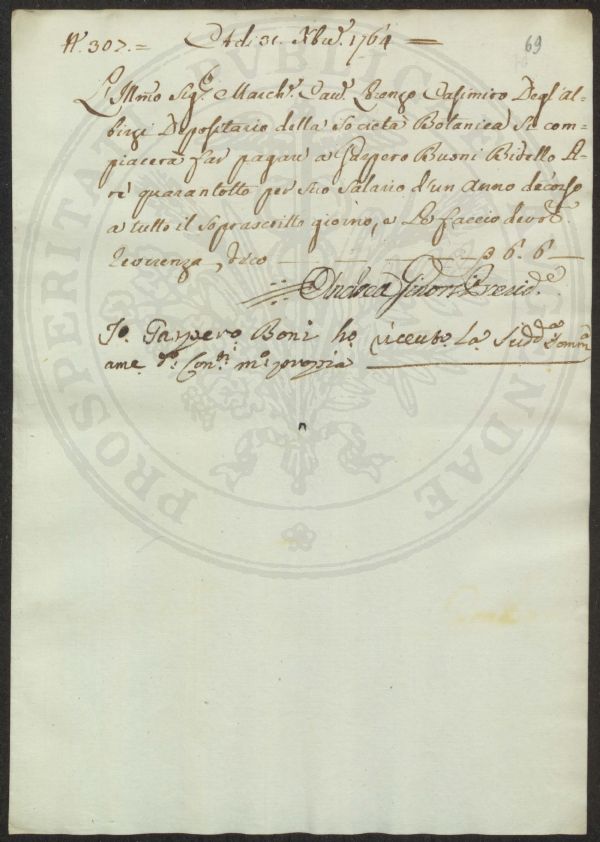 N.° 307.= Adi 31. Xbre. 1764 =
69
L'Illmo Sigr. March. Cav. Lorenzo Casimiro Degl'Al-
bizzi Depositario della Società Botanica Si com-
piacerà far pagare a Gaspero Buoni Bidello Li-
re quarantotto per suo Salario d'un Anno decorso
a tutto il Soprascritto giorno, e Le faccio devot.
reverenza, dico 6. 6 —
Andrea Presid.e
Io. Gaspero. Boni ho riceuto. La Sudda. Somm
ame. do. Conti. mo. propia
PUBLICAE PROSPERITATI